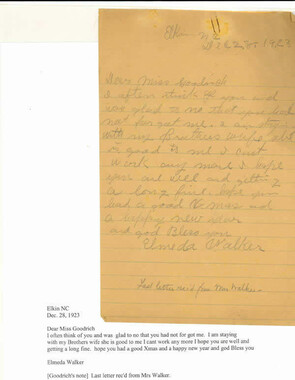 Elkin NC
Dec 28 1923
Dear Miss Goodrich
I often think of you and
was glad to no that you had
not for got me. I am staying
with my Brothers wife she
is good to me I cant
work any more I hope
you are well and getting
a long fine. hope you
had a good Xmas and
a happy new year
and god Bless you
Elmeda Walker
Last letter rec'd from Mrs Walker.
Elkin NC
Dec. 28, 1923
Dear Miss Goodrich
I often think of you and was glad to no that you had not for got me. I am staying
with my Brothers wife she is good to me I cant work any more I hope you are well and
getting a long fine. hope you had a good Xmas and a happy new year and god Bless you
Elmeda Walker
[Goodrich's note] Last letter rec'd from Mrs Walker.